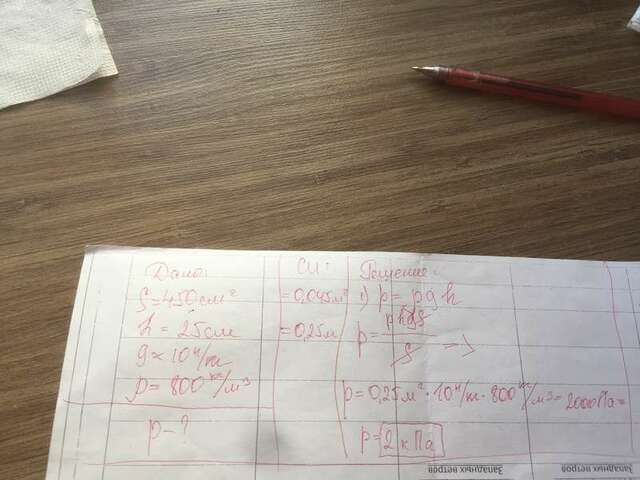 Дано:
S = 450 см²
h = 25 см
g ≈ 10 Н/кг
ρ = 800 кг/м³
p - ?
СИ:
= 0,045 м²
= 0,25 м
Решение:
1) p = ρgh
p =
S
p = 0,25 м · 10 Н/кг · 800 кг/м³ = 2000 Па =
p = 2 кПа
Западных ветров
Западных ветров